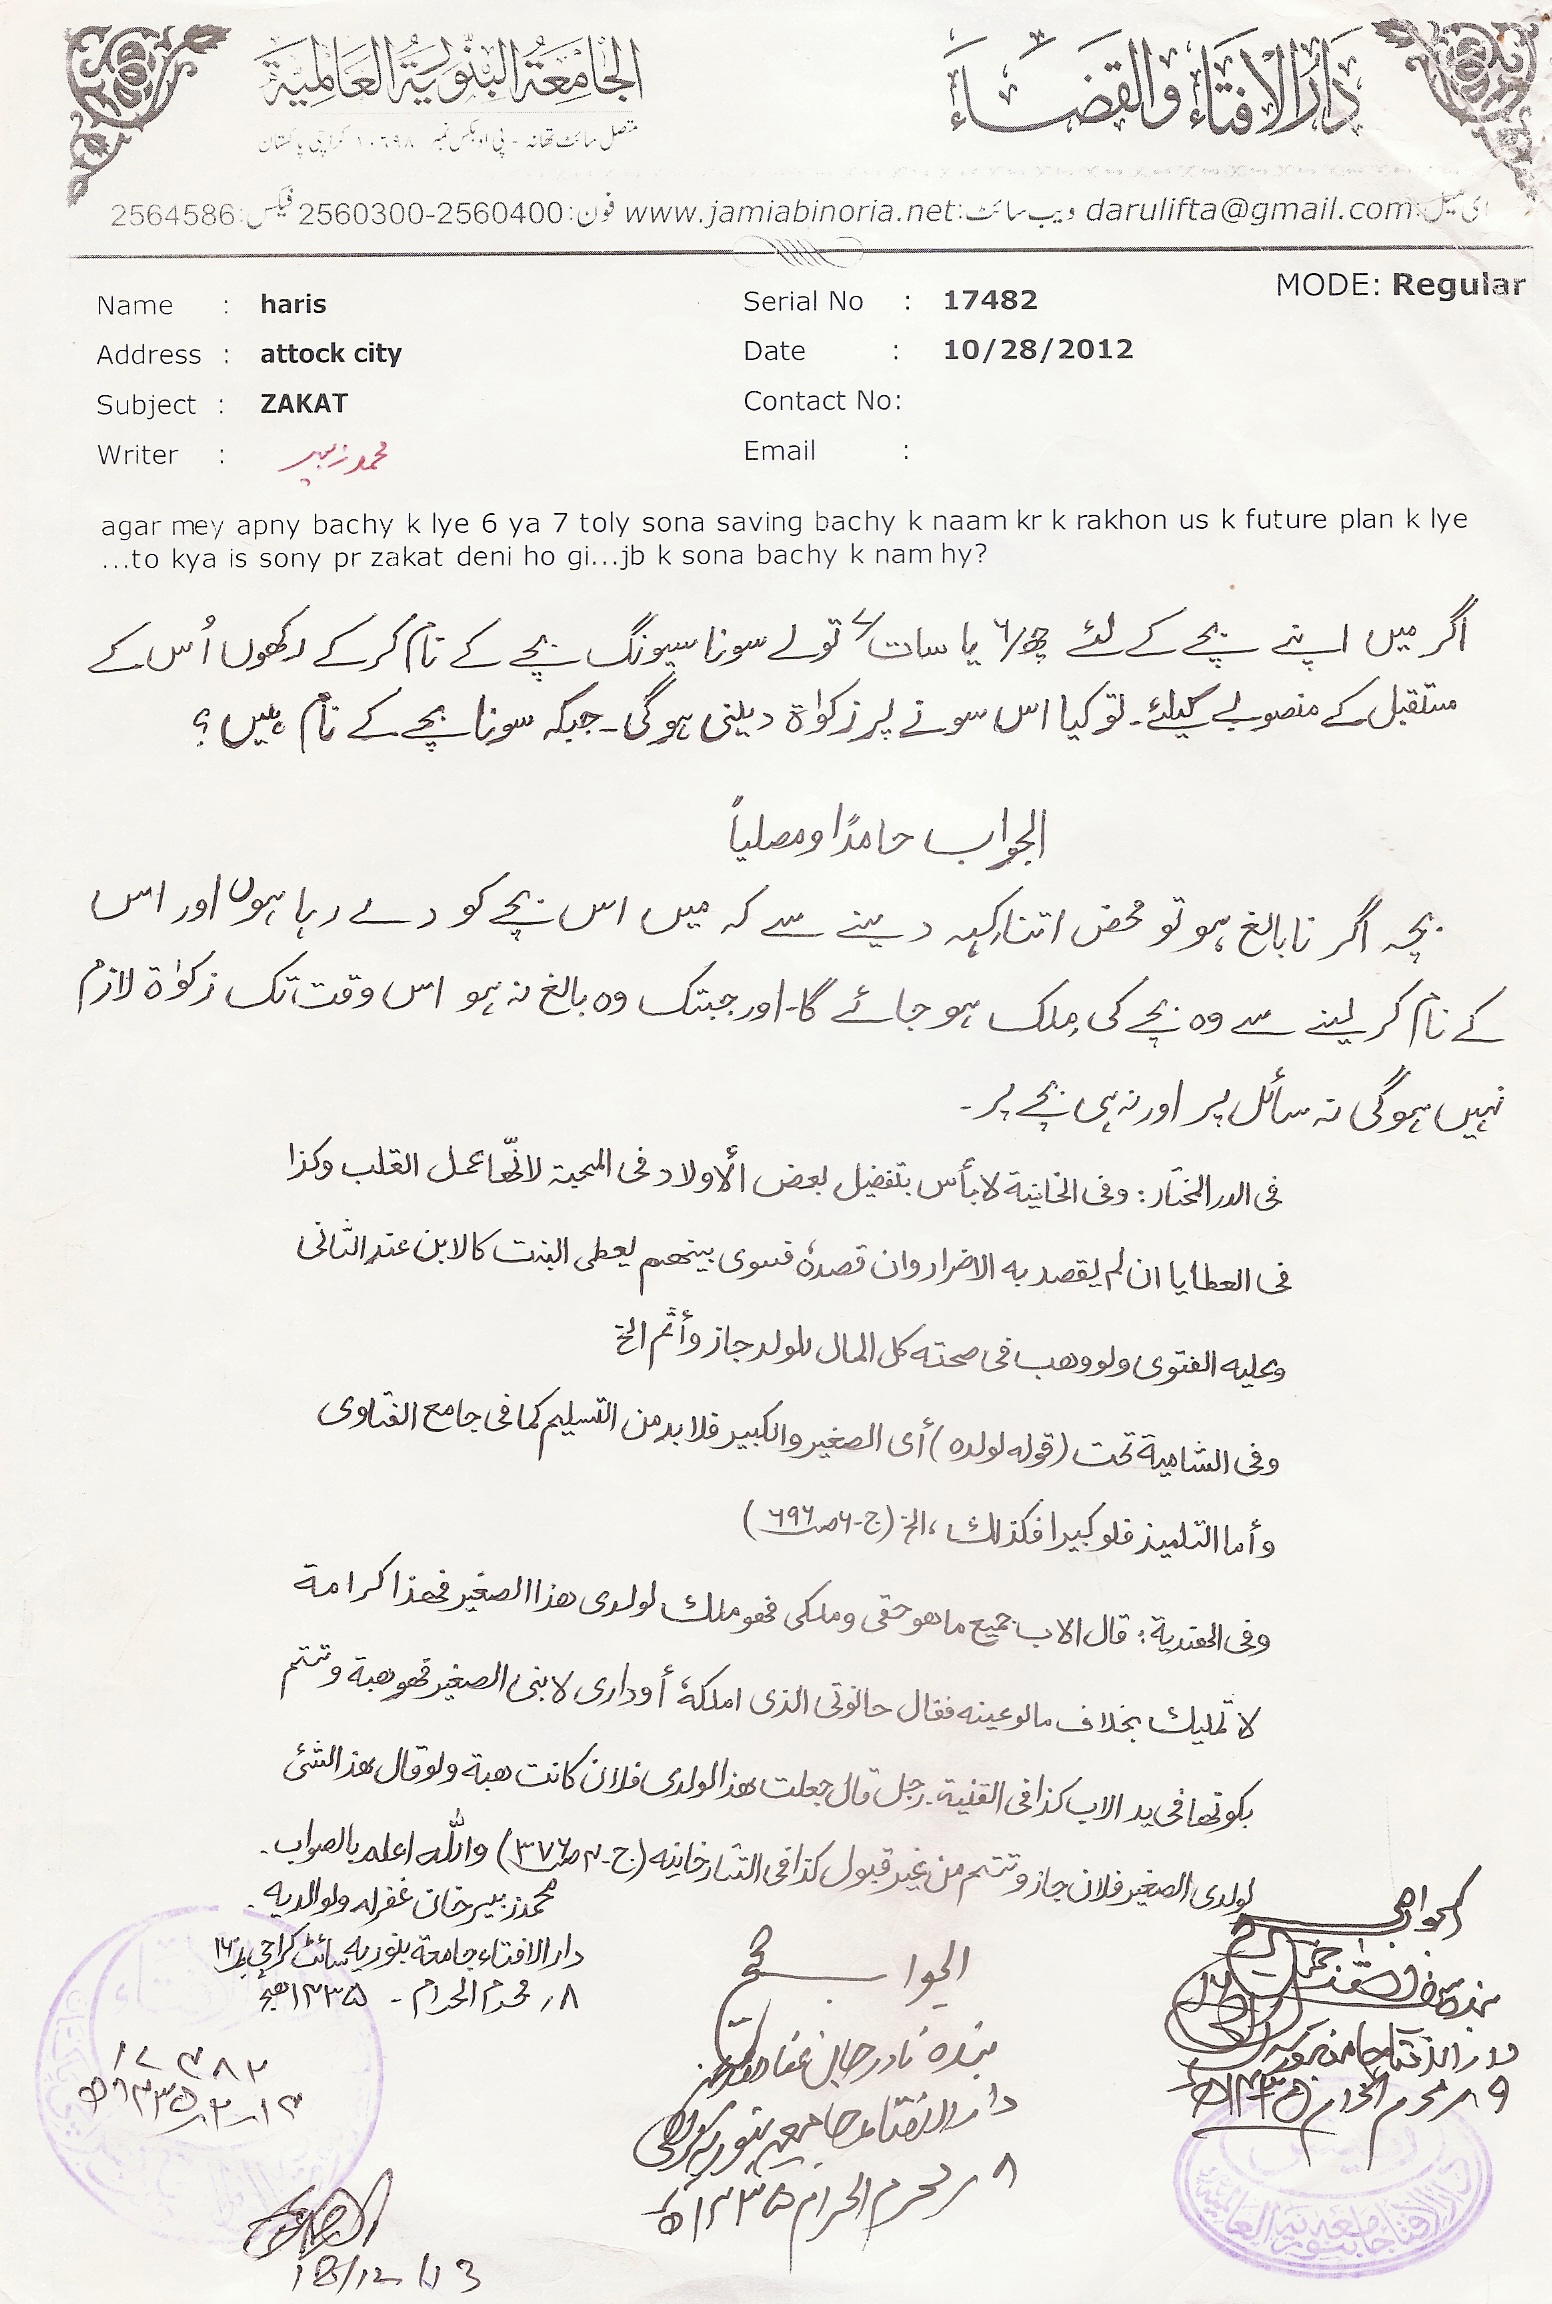 دَارُالْافتَاء وَالقَضَاء
الجَامِعَةُ البَنُّورِيَّةُ العَالَمِيَّة
متصل سائٹ تھانہ - پی او بکس نمبر ۱۰۶۹۸ کراچی پاکستان
ای میل: darulifta@gmail.com ویب سائٹ: www.jamiabinoria.net فون: 2560300-2560400 فیکس: 2564586
MODE: Regular
Name : haris
Serial No : 17482
Address : attock city
Date : 10/28/2012
Subject : ZAKAT
Contact No:
Writer : محمد زبیر
Email :
agar mey apny bachy k lye 6 ya 7 toly sona saving bachy k naam kr k rakhon us k future plan k lye
...to kya is sony pr zakat deni ho gi...jb k sona bachy k nam hy?
اگر میں اپنے بچے کے لئے چھ/۶ یا سات/۷ تولے سونا سیونگ بچے کے نام کر کے رکھوں اُس کے
مستقبل کے منصوبے کیلئے۔ تو کیا اس سونے پر زکوٰۃ دینی ہوگی۔ جبکہ سونا بچے کے نام ہیں؟
الجواب حامدًا ومصلیاً
بچہ اگر نابالغ ہو تو محض اتنا کہہ دینے سے کہ میں اس بچے کو دے رہا ہوں اور اس
کے نام کر لینے سے وہ بچے کی مِلک ہو جائے گا۔ اور جبتک وہ بالغ نہ ہو اس وقت تک زکوٰۃ لازم
نہیں ہوگی نہ سائل پر اور نہ ہی بچے پر۔
فی الدر المختار: وفی الخانیة لا بأس بتفضیل بعض الأولاد فی المحبة لانّھا عمل القلب وکذا
فی العطایا ان لم یقصد به الاضرار وان قصدہٗ فسوی بینھم یعطی البنت کالابن عند الثانی
وعلیه الفتوی ولو وھب فی صحته کل المال للولد جاز وأثم الخ
وفی الشامیة تحت (قوله لولدہ) أی الصغیر والکبیر فلا بد من التسلیم کما فی جامع الفتاوی
وأما التلمیذ فلو کبیرا فکذلك، الخ (ج-۶ صـ۶۹۶)
وفی الھندیة: قال الاب جمیع ما ھو حقی وملکی فھو ملك لولدی ھذا الصغیر فھذا کرامة
لا تملیك بخلاف ما لو عینه فقال حانوتی الذی املکهٗ أو داری لابنی الصغیر فھو ھبة وتتم
بکونھا فی ید الاب کذا فی القنیة۔ رجل قال جعلت ھذا لولدی فلان کانت ھبة ولو قال ھذا الشئ
لولدی الصغیر فلان جاز وتتم من غیر قبول کذا فی التتارخانیه (ج-۴ صـ۳۷۶) واللہ اعلم بالصواب۔
محمد زبیر خان غفرله ولوالدیه
دار الافتاء جامعه بنوریه سائٹ کراچی ۱۶
۸ محرم الحرام - ۱۴۳۵ھ
الجواب صحیح
بندہ نادر جان عفا اللہ عنہ
دار الافتاء جامعہ بنوریہ کراچی
۸ محرم الحرام ۱۴۳۵ھ
الجواب صحیح
دار الافتاء جامعہ بنوریہ
۹ محرم الحرام ۱۴۳۵ھ
18/12/13